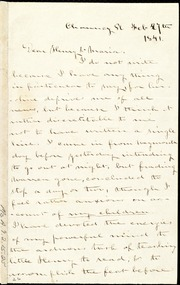 Chauncey St Feb 27th
1841.
Dear Henry & Maria.
I do not write
because I have any thing
in particular to say, for Lou-
isa deprive me of all
news, but because I think it
rather discreditable to me
not to write a single
line. I came in from Weymouth
day before yesterday, intending
to go out at night, but finding
Warren gone, concluded to
stop a day or two, though I
feel rather anxious on ac-
count of my children
I have devoted the energies
of my powerful mind to
the arduous task of teaching
little Henry to read, & to
accomplish the feat before